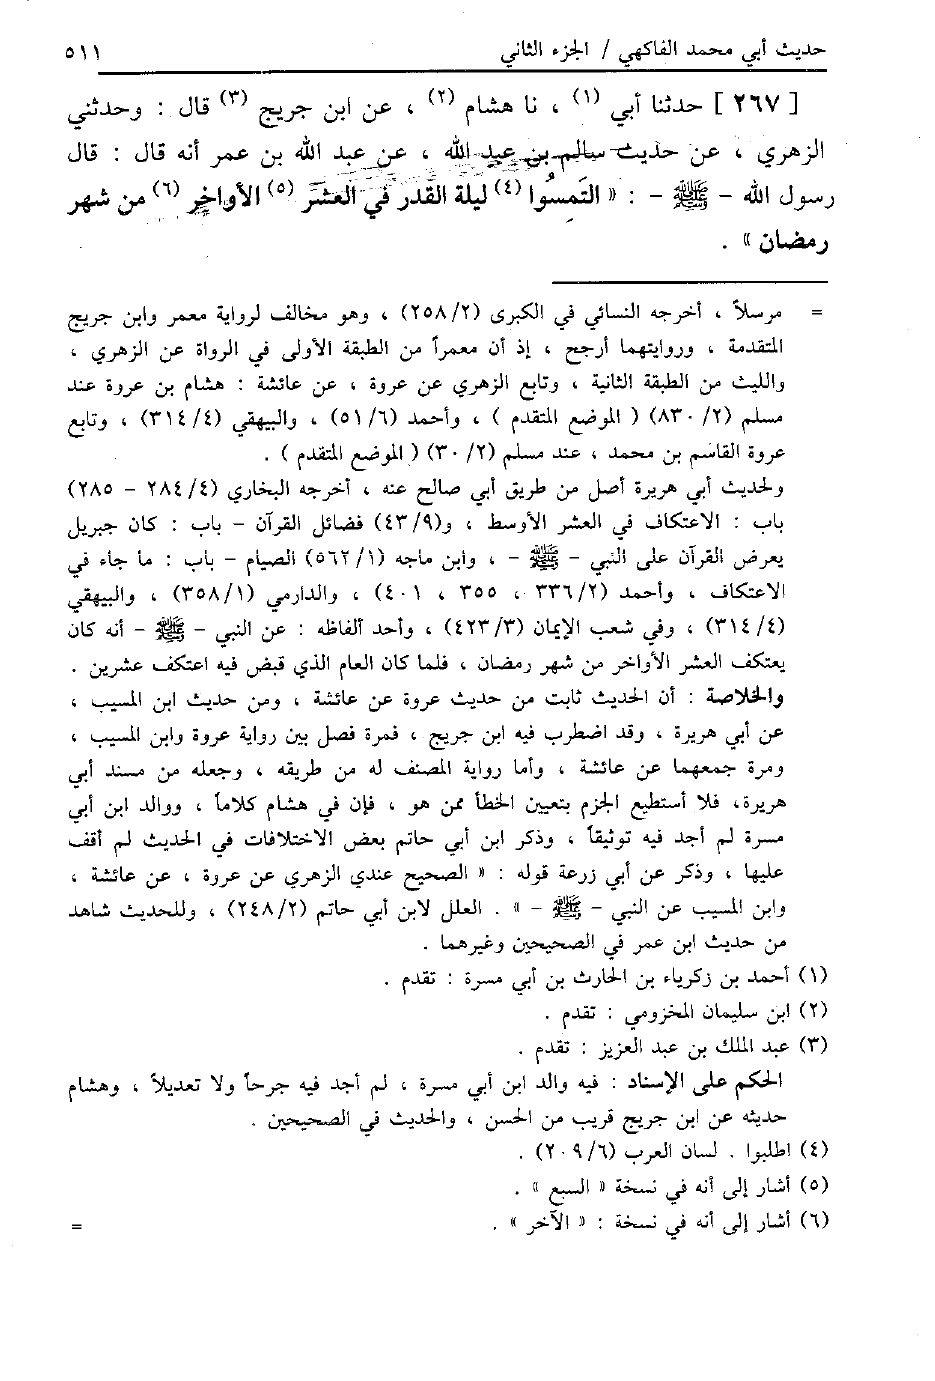 حديث أبي محمد الفاكهي / الجزء الثاني ٥١١
[ ٢٦٧ ] حدثنا أبي (١) ، نا هشام (٢) ، عن ابن جريج (٣) قال : وحدثني
الزهري ، عن حديث سالم بن عبد الله ، عن عبد الله بن عمر أنه قال : قال
رسول الله - ﷺ - : « التمسُوا (٤) ليلة القدر في العشر (٥) الأواخر (٦) من شهر
رمضان » .
= مرسلاً ، أخرجه النسائي في الكبرى (٢٥٨/٢) ، وهو مخالف لرواية معمر وابن جريج
المتقدمة ، وروايتهما أرجح ، إذ أن معمراً من الطبقة الأولى في الرواة عن الزهري ،
والليث من الطبقة الثانية ، وتابع الزهري عن عروة ، عن عائشة : هشام بن عروة عند
مسلم (٨٣٠/٢) ( الموضع المتقدم ) ، وأحمد (٥١/٦) ، والبيهقي (٣١٤/٤) ، وتابع
عروة القاسم بن محمد ، عند مسلم (٣٠/٢) ( الموضع المتقدم ) .
ولحديث أبي هريرة أصل من طريق أبي صالح عنه ، أخرجه البخاري (٢٨٤/٤ - ٢٨٥)
باب : الاعتكاف في العشر الأوسط ، و(٤٣/٩) فضائل القرآن - باب : كان جبريل
يعرض القرآن على النبي - ﷺ - ، وابن ماجه (٥٦٢/١) الصيام - باب : ما جاء في
الاعتكاف ، وأحمد (٣٣٦/٢ ، ٣٥٥ ، ٤٠١) ، والدارمي (٣٥٨/١) ، والبيهقي
(٣١٤/٤) ، وفي شعب الإيمان (٤٢٣/٣) ، وأحد ألفاظه : عن النبي - ﷺ - أنه كان
يعتكف العشر الأواخر من شهر رمضان ، فلما كان العام الذي قبض فيه اعتكف عشرين .
والخلاصة : أن الحديث ثابت من حديث عروة عن عائشة ، ومن حديث ابن المسيب ،
عن أبي هريرة ، وقد اضطرب فيه ابن جريج ، فمرة فصل بين رواية عروة وابن المسيب ،
ومرة جمعهما عن عائشة ، وأما رواية المصنف له من طريقه ، وجعله من مسند أبي
هريرة، فلا أستطيع الجزم بتعيين الخطأ ممن هو ، فإن في هشام كلاماً ، ووالد ابن أبي
مسرة لم أجد فيه توثيقاً ، وذكر ابن أبي حاتم بعض الاختلافات في الحديث لم أقف
عليها ، وذكر عن أبي زرعة قوله : « الصحيح عندي الزهري عن عروة ، عن عائشة ،
وابن المسيب عن النبي - ﷺ - » . العلل لابن أبي حاتم (٢٤٨/٢) ، وللحديث شاهد
من حديث ابن عمر في الصحيحين وغيرهما .
(١) أحمد بن زكرياء بن الحارث بن أبي مسرة : تقدم .
(٢) ابن سليمان المخزومي : تقدم .
(٣) عبد الملك بن عبد العزيز : تقدم .
الحكم على الإسناد : فيه والد ابن أبي مسرة ، لم أجد فيه جرحاً ولا تعديلاً ، وهشام
حديثه عن ابن جريج قريب من الحسن ، والحديث في الصحيحين .
(٤) اطلبوا . لسان العرب (٢٠٩/٦) .
(٥) أشار إلى أنه في نسخة « السبع » .
(٦) أشار إلى أنه في نسخة : « الآخر » . =